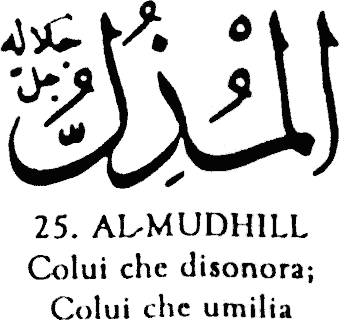 المُذِلُّ جل جلاله
25. AL-MUDHILL
Colui che disonora;
Colui che umilia